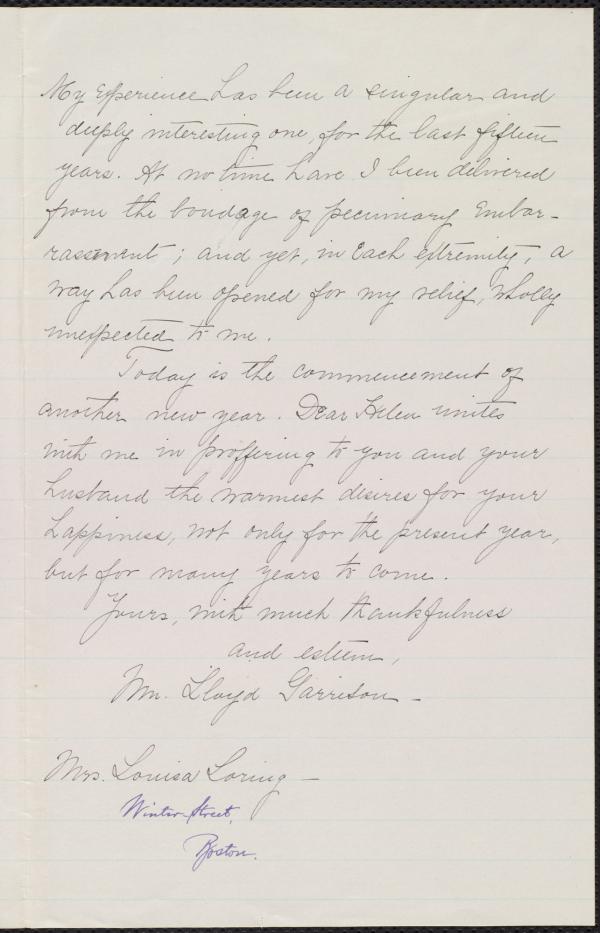 My Experience has been a singular and
deeply interesting one, for the last fifteen
years. At no time have I been delivered
from the bondage of pecuniary Embar-
rassment; and yet, in Each extremity, a
way has been opened for my relief, wholly
unexpected to me.
Today is the commencement of
another new year. Dear Helen unites
with me in proffering to you and your
husband the warmest desires for your
happiness, not only for the present year,
but for many years to come.
Yours, with much thankfulness
and esteem,
Wm. Lloyd Garrison -
Mrs. Louisa Loring -
Winter Street,
Boston.